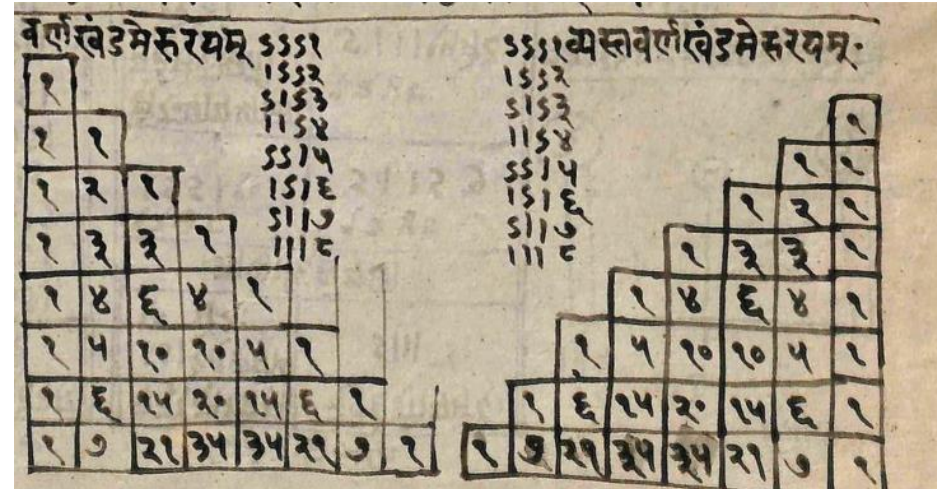 वर्णखंडमेरुरयम्
ऽऽऽ१
।ऽऽ२
ऽ।ऽ३
।।ऽ४
ऽऽ।५
।ऽ।६
ऽ।।७
।।।८
१
१ १
१ २ १
१ ३ ३ १
१ ४ ६ ४ १
१ ५ १० १० ५ १
१ ६ १५ २० १५ ६ १
१ ७ २१ ३५ ३५ २१ ७ १
ऽऽऽ१
।ऽऽ२
ऽ।ऽ३
।।ऽ४
ऽऽ।५
।ऽ।६
ऽ।।७
।।।८
व्यस्तवर्णखंडमेरुरयम्·
१
१ १
१ २ १
१ ३ ३ १
१ ४ ६ ४ १
१ ५ १० १० ५ १
१ ६ १५ २० १५ ६ १
१ ७ २१ ३५ ३५ २१ ७ १